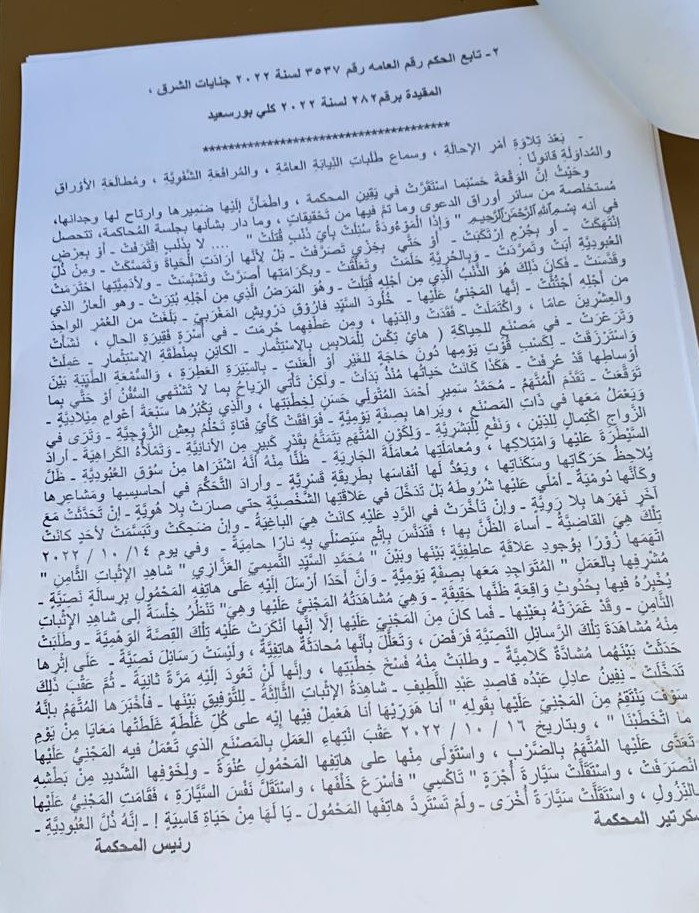 ٢- تابع الحكم رقم العامه رقم ٣٥٣٧ لسنة ٢٠٢٢ جنايات الشرق ،
المقيدة برقم ٢٨٢ لسنة ٢٠٢٢ كلي بورسعيد
******************************************
- بَعْدَ تِلَاوَةِ أَمْرِ الإحالَةِ ، وسماع طلَباتِ النِّيابَةِ العامَّةِ ، والمُرافَعَةِ الشَّفَوِيَّةِ ، ومُطالَعَةِ الأوْرَاقِ
والمُداوَلَةِ قانُونًا :
وحَيْثُ إنَّ الوقْعَةَ حَسْبَما استَقَرَّتْ في يَقِينِ المحكمة ، واطمَأنَّ إلَيْها ضَمِيرها وارتاح لها وجدانها،
مُستخلصة من سائر أوراق الدعوى وما تمَّ فيها من تَحْقِيقاتٍ ، وما دار بشأنها بجلسة المُحاكمة، تتحصل
في أنه بِسْمِ اللهِ الرَّحْمَنِ الرَّحِيمِ " وَإِذَا الْمَوْءُودَةُ سُئِلَتْ بِأَيِّ ذَنْبٍ قُتِلَتْ " .... لا بذَنْبٍ اقْتَرَفَتْ - أو بعِرْضٍ
إنْتَهَكَتْ - أو بجُرْمٍ ارْتَكَبَتْ - أَوْ حَتَّى بِخِزْيٍ تَصَرَّفَتْ - بَلْ لأنَّها أرَادَتِ الْحَيَاةَ وَتَمَسَّكَتْ - ومِنْ ذُلِّ
العُبُودِيَّةِ أبَتْ وتَمَرَّدَتْ - وبِالحُرِّيَّةِ حَلُمَتْ وتَعَلَّقَتْ - وبكَرَامَتِها أصَرَّتْ وتَشَبَّسَتْ - ولآدَمِيَّتِها احْتَرَمَتْ
وقَدَّسَتْ - فكانَ ذلكَ هُوَ الذَّنْبُ الَّذِي مِن أَجْلِهِ قُتِلَتْ - وهو المَرَضُ الَّذِي مِن أَجْلِهِ بُتِرَتْ - وهو العارُ الذي
من أَجْلِهِ اجْتُثَّتْ - إنَّها المَجْنِيُّ عَلَيْها - خُلُودُ السَّيِّدِ فارُوق دَرويش المَغْرَبِيِّ - بَلَغَتْ من العُمْرِ الواحِدَ
والعشرينَ عامًا ، واكْتَمَلَتْ - فَقَدَتْ والدَيْها ، ومن عَطْفِهِما حُرِمَت - في أُسْرَةٍ فقِيرَةِ الحالِ ، نَشَأَتْ
وتَرَعْرَتْ - في مَصْنَعٍ للحِياكَةِ ( هاي تِكِس للمَلَابِسِ بالإستِثْمارِ - الكائِنِ بِمِنطَقَةِ الإستِثْمارِ - عَمِلَتْ
واسْتَرْزَقَتْ - لِكَسْبِ قُوتِ يَوْمِها دُونَ حَاجَةٍ للغَيْرِ أوْ العَنَتِ - بالسِّيرَةِ العَطِرَةِ ، والسُّمْعَةِ الطَّيِّبَةِ بَيْنَ
أوْساطِها قَدْ عُرِفَتْ - هَكَذَا كانَتْ حَياتُها مُنْذُ بَدَأتْ - ولَكِنْ تَأتي الرِّياحُ بما لا تَشْتَهي السُّفُنُ أوْ حَتَّى بِما
تَوَقَّعَتْ - تقَدَّمَ المُتَّهَمُ - مُحَمَّد سَمِير أحْمَد المُتَوَلِّي حَسَن لِخِطْبَتِها ، والَّذِي يَكْبُرُها سَبْعَةَ أعْوامٍ مِيلَادِيَّةٍ -
ويَعْمَلُ مَعَها في ذاتِ المَصْنَعِ ، ويَراها بصِفَةٍ يَوْمِيَّةٍ - فوافَقَتْ كَأيِّ فَتاةٍ تَحْلُمُ بِعِشِّ الزَّوْجِيَّةِ - وتَرَى في
الزَّواجِ اكْتِمالٍ للدِّينِ ، ونَفْعٍ للْبَشَرِيَّةِ - ولِكَوْنِ المُتَّهَمِ يَتَمَتَّعُ بِقَدْرٍ كَبِيرٍ مِن الأنانِيَّةِ - وتَمْلأهُ الكَرَاهِيَة - أرادَ
السَّيْطَرَةَ عَلَيْها وامْتِلاكِها ، ومُعامَلَتِها مُعامَلَةَ الجارِيَةِ - ظَنًّا مِنْهُ أنَّهُ اشْتَراها مِنْ سُوقِ العُبُودِيَّةِ - ظَلَّ
يُلاحِظُ حَرَكاتِها وسَكَناتِها ، ويَعُدُّ لَها أنْفاسَها بطَرِيقَةٍ قَسْرِيَّةٍ - وأرادَ التَّحَكُّمَ في أحاسِيسِها ومَشاعِرِها
وكَأنَّها دُومْيَةٌ - أمْلَى عَلَيْها شُرُوطَهُ بَلْ تَدَخَّلَ في عَلاقَتِها الشَّخْصِيَّةِ حتى صارَتْ بِلا هُوِيَّةٍ - إنْ تَحَدَّثَتْ مَعَ
آخَرٍ نَهَرَها بِلا رَوِيَّةٍ - وإنْ تَأخَّرَتْ في الرَّدِّ عَلَيْهِ كانَتْ هيَ الباغِيَةَ - وإنْ ضَحِكَتْ وتَبَسَّمَتْ لأحَدٍ كانَتْ
تِلْكَ هِيَ القاضِيَةُ - أساءَ الظَّنَّ بِها ؛ فَتَدَنَّسَ بإثْمٍ سَيَصْلَى بِهِ نارًا حامِيَةً - وفي يوم ١٤/ ١٠ / ٢٠٢٢
اتَّهَمَها زُورًا بوُجُودِ عَلاقَةٍ عاطِفِيَّةٍ بَيْنَها وبَيْنَ " مُحَمَّد السَّيِّد التَّميمِيّ العَزَّازِي " شاهِدِ الإثْباتِ الثَّامِنِ "
مُشْرِفِها بالعَمَلِ " المُتَواجِدِ مَعَها بصِفَةٍ يَوْمِيَّةٍ - وَأنَّ أحَدًا أرْسَلَ إلَيْهِ عَلَى هاتِفِهِ المَحْمُولِ برِسالَةٍ نَصِيَّةٍ -
يُخْبِرُهُ فيها بحُدُوثِ واقِعَةٍ ظَنَّها حَقِيقَةٍ - وَهِيَ مُشاهَدَتُهُ المَجْنِيَّ عَلَيْها وهِيَ" تَنْظُرُ خِلْسَةً إلى شاهِدِ الإثْباتِ
الثَّامِنِ - وقَدْ غَمَزَتْهُ بعَيْنِها - فَما كانَ مِنَ المَجْنِيِّ عَلَيْها إلَّا إنَّها أنْكَرَتْ عَلَيْهِ تِلْكَ القِصَّةَ الوَهْمِيَّةَ - وطَلَبَتْ
مِنْهُ مُشاهَدَةَ تِلْكَ الرَّسائِلِ النَصِيَّةِ فرَفَضَ ، وتَعَلَّلَ بأنَّها مُحادَثَةٌ هاتِفِيَّةٌ ، ولَيْسَتْ رَسائِلَ نَصِيَّةً - عَلَى إثْرِها
حَدَثَتْ بَيْنَهُما مُشادَّةٌ كَلامِيَّةٌ - وطَلَبَتْ مِنْهُ فَسْخَ خِطْبَتِها ، وإنَّها لَنْ تَعُودَ إلَيْهِ مَرَّةً ثانِيَةً - ثُمَّ عَقْبَ ذَلِكَ
تَدَخَّلَتْ - نِفِين عادِل عَبْدُه قاصِد عَبْدِ اللَّطِيفِ - شاهِدَةُ الإثْباتِ الثَّالِثَةُ - للتَّوْفِيقِ بَيْنَها - فأخْبَرَها المُتَّهَمُ بأنَّهُ
سَوْفَ يَنْتَقِمُ مِنَ المَجْنِيِّ عَلَيْها بقَوْلِهِ " أنا هَوَرِّيْها أنا هَعْمِلُ فيها إيَه على كُلِّ غَلْطَةٍ غَلَطَتْها مَعايا مِن يَوْمِ
ما اتْخَطَبْنا " ، وبتاريخ ١٦ / ١٠ / ٢٠٢٢ عَقْبَ انْتِهاءِ العَمَلِ بالمَصْنَعِ الذي تَعْمَلُ فيه المَجْنِيُّ عَلَيْها
تَعَدَّى عَلَيْها المُتَّهَمُ بالضَّرْبِ ، واسْتَوْلَى مِنْها على هاتِفِها المَحْمُولِ عُنْوَةً - ولِخَوْفِها الشَّدِيدِ مِنْ بَطْشِهِ
انْصَرَفَتْ ، واسْتَقَلَّتْ سَيَّارَةَ أُجْرَةٍ " تَاكْسِي " فأسْرَعَ خَلْفَها ، واسْتَقَلَّ نَفْسَ السَّيَّارَةِ ، فَقامَتِ المَجْنِيُّ عَلَيْها
بالنُّزُولِ ، واسْتَقَلَّتْ سَيَّارَةً أُخْرَى - ولَمْ تَسْتَرِدَّ هاتِفَها المَحْمُولَ - يَا لَهَا مِن حَيَاةٍ قاسِيَةٍ ! - إنَّهُ ذُلُّ العُبُودِيَّةِ -
سكرتير المحكمة
رئيس المحكمة